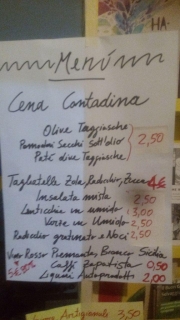 Menù
HA-
Cena Contadina
Olive Taggiasche
Pomodori Secchi Sott'olio 2,50
Patè olive Taggiasche
Tagliatelle Zola, Radicchio, Zucca 4€
Insalata mista 2,50
Lenticchie in umido 3,00
Verze in Umido 2,50
Radicchio gratinato e Noci 2,50
Vino Rosso Piemontese, Bianco Sicilia
5€
Caffè Zapatista 0,50
Liquori Autoprodotti 2,00
Artigianale 3,50